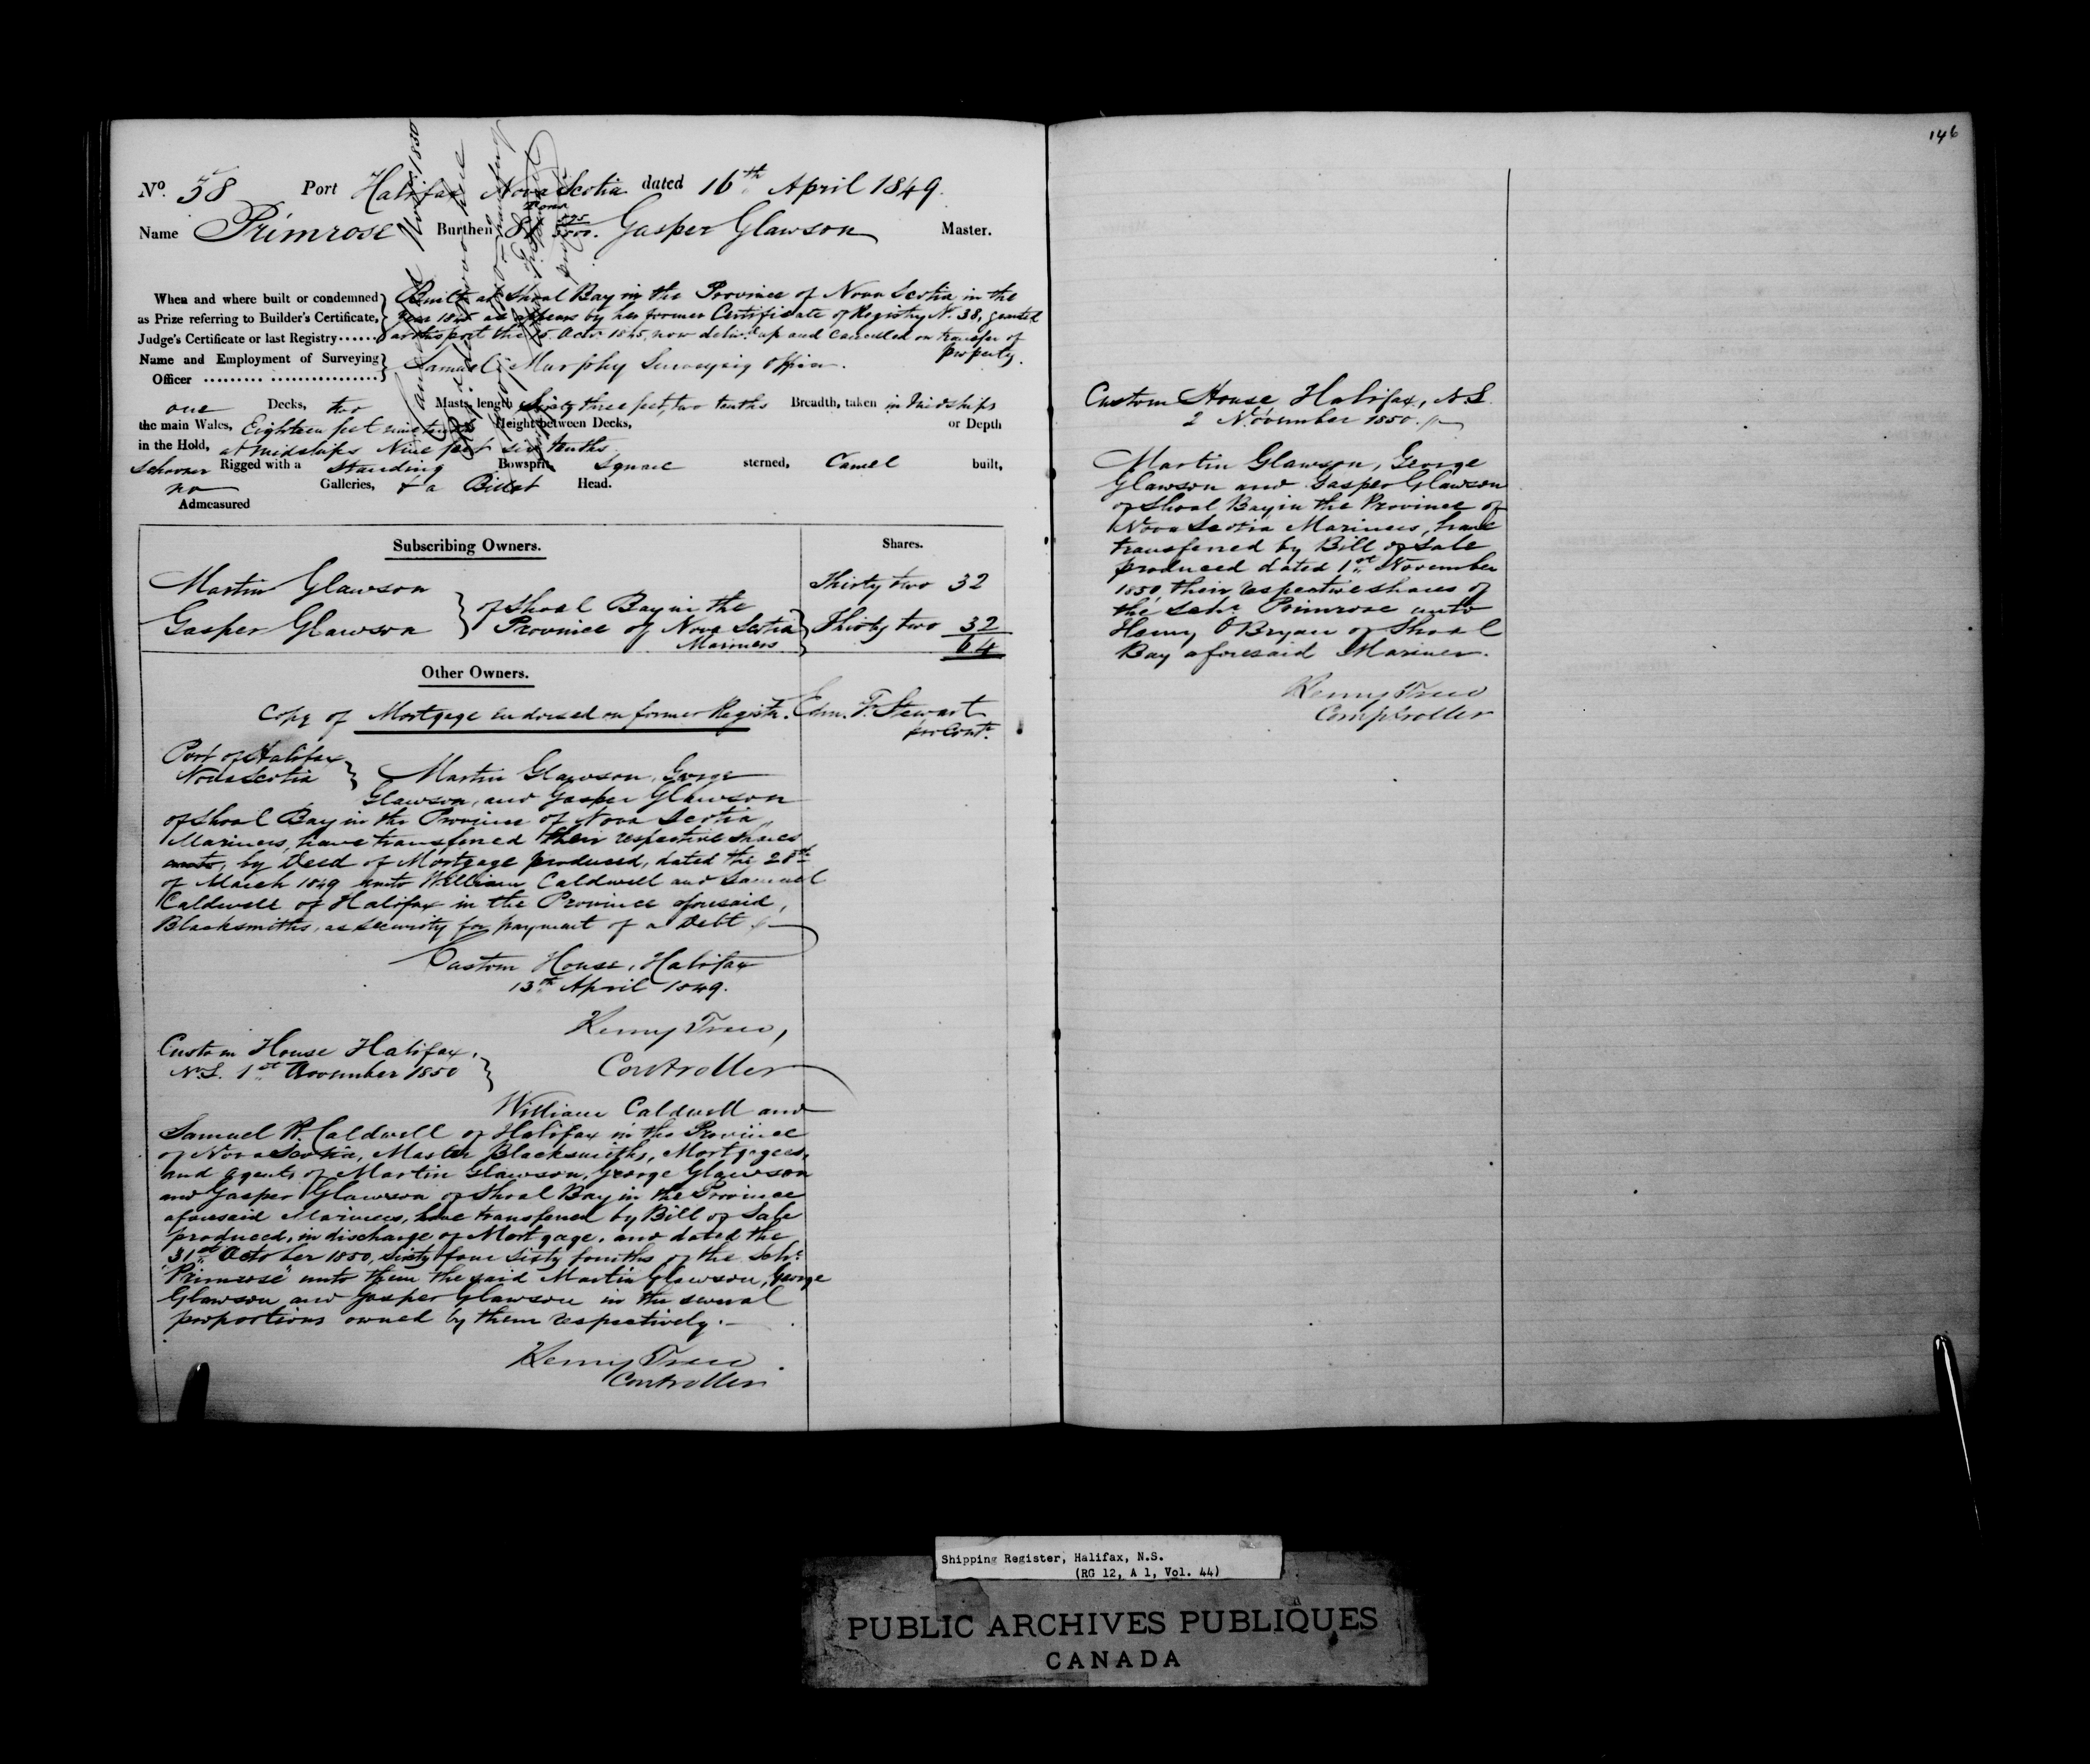 146
No. 38 Port Halifax Nova Scotia dated 16th April 1849.
Name Primrose Burthen Tons 81 595/3500. Gasper Glawson Master.
When and where built or condemned as Prize referring to Builder's Certificate, Judge's Certificate or last Registry......
Built at Shoal Bay in the Province of Nova Scotia in the
year 1845 as appears by her former Certificate of Registry No. 38, granted
at this port the 15 Octr. 1845, now deliv.d up and cancelled on transfer of
property.
Name and Employment of Surveying Officer
Samuel Murphy Surveying Officer.
one Decks, two Masts, length Sixty three feet, two tenths Breadth, taken in Midships
the main Wales, Eighteen feet nine tenths Height between Decks, or Depth
in the Hold, at midships Nine feet six tenths
Schooner Rigged with a Standing Bowsprit, Square sterned, Carvel built,
no Galleries, & a Billet Head.
Admeasured
Subscribing Owners. Shares.
Martin Glawson Thirty two 32
of Shoal Bay in the
Gasper Glawson Province of Nova Scotia Thirty two 32
Mariners 64
Other Owners.
Copy of Mortgage endorsed on former Registr. Edm. F. Stewart
pro Contr.
Port of Halifax
Nova Scotia
Martin Glawson, George
Glawson, and Gasper Glawson
of Shoal Bay in the Province of Nova Scotia,
Mariners, have transferred their respective shares
unto, by Deed of Mortgage produced, dated the 28th
of March 1849 unto William Caldwell and Samuel
Caldwell of Halifax in the Province aforesaid,
Blacksmiths, as security for payment of a Debt
Custom House, Halifax
13th April 1849.
Henry Trew,
Controller
Custom House Halifax,
N.S. 1st November 1850
William Caldwell and
Samuel R. Caldwell of Halifax in the Province
of Nova Scotia, Master Blacksmiths, Mortgagees
and Agents of Martin Glawson, George Glawson
and Gasper Glawson of Shoal Bay in the Province
aforesaid Mariners, have transferred by Bill of Sale
produced, in discharge of Mortgage, and dated the
31st October 1850, sixty four sixty fourths of the Schr.
"Primrose" unto them the said Martin Glawson, George
Glawson and Gasper Glawson in the several
proportions owned by them respectively.
Henry Trew
Controller
Custom House Halifax, N.S.
2 November 1850.
Martin Glawson, George
Glawson and Gasper Glawson
of Shoal Bay in the Province of
Nova Scotia Mariners, have
transferred by Bill of Sale
produced dated 1st November
1850, their respective shares of
the Schr. Primrose unto
Henry O'Bryan of Shoal
Bay aforesaid Mariner.
Henry Trew
Comptroller
Shipping Register, Halifax, N.S.
(RG 12, A 1, Vol. 44)
PUBLIC ARCHIVES PUBLIQUES
CANADA